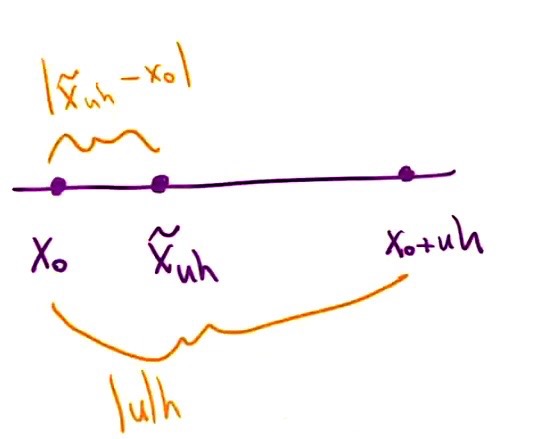 |x̃_uh − x₀|
x₀ x̃_uh x₀+uh
|u|h